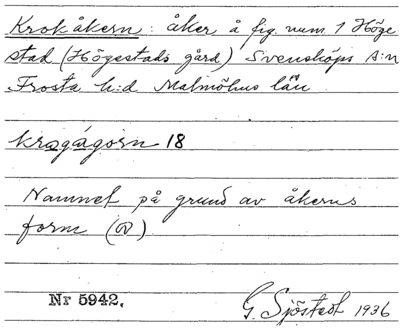 Krokåkern: åker å fig. num 1 Höge
stad (Högestads gård) Svensköps s:n
Frosta h:d Malmöhus län
krogágorn 18
Namnet på grund av åkerns
form (∿)
Nr 5942.
G. Sjöstedt 1936